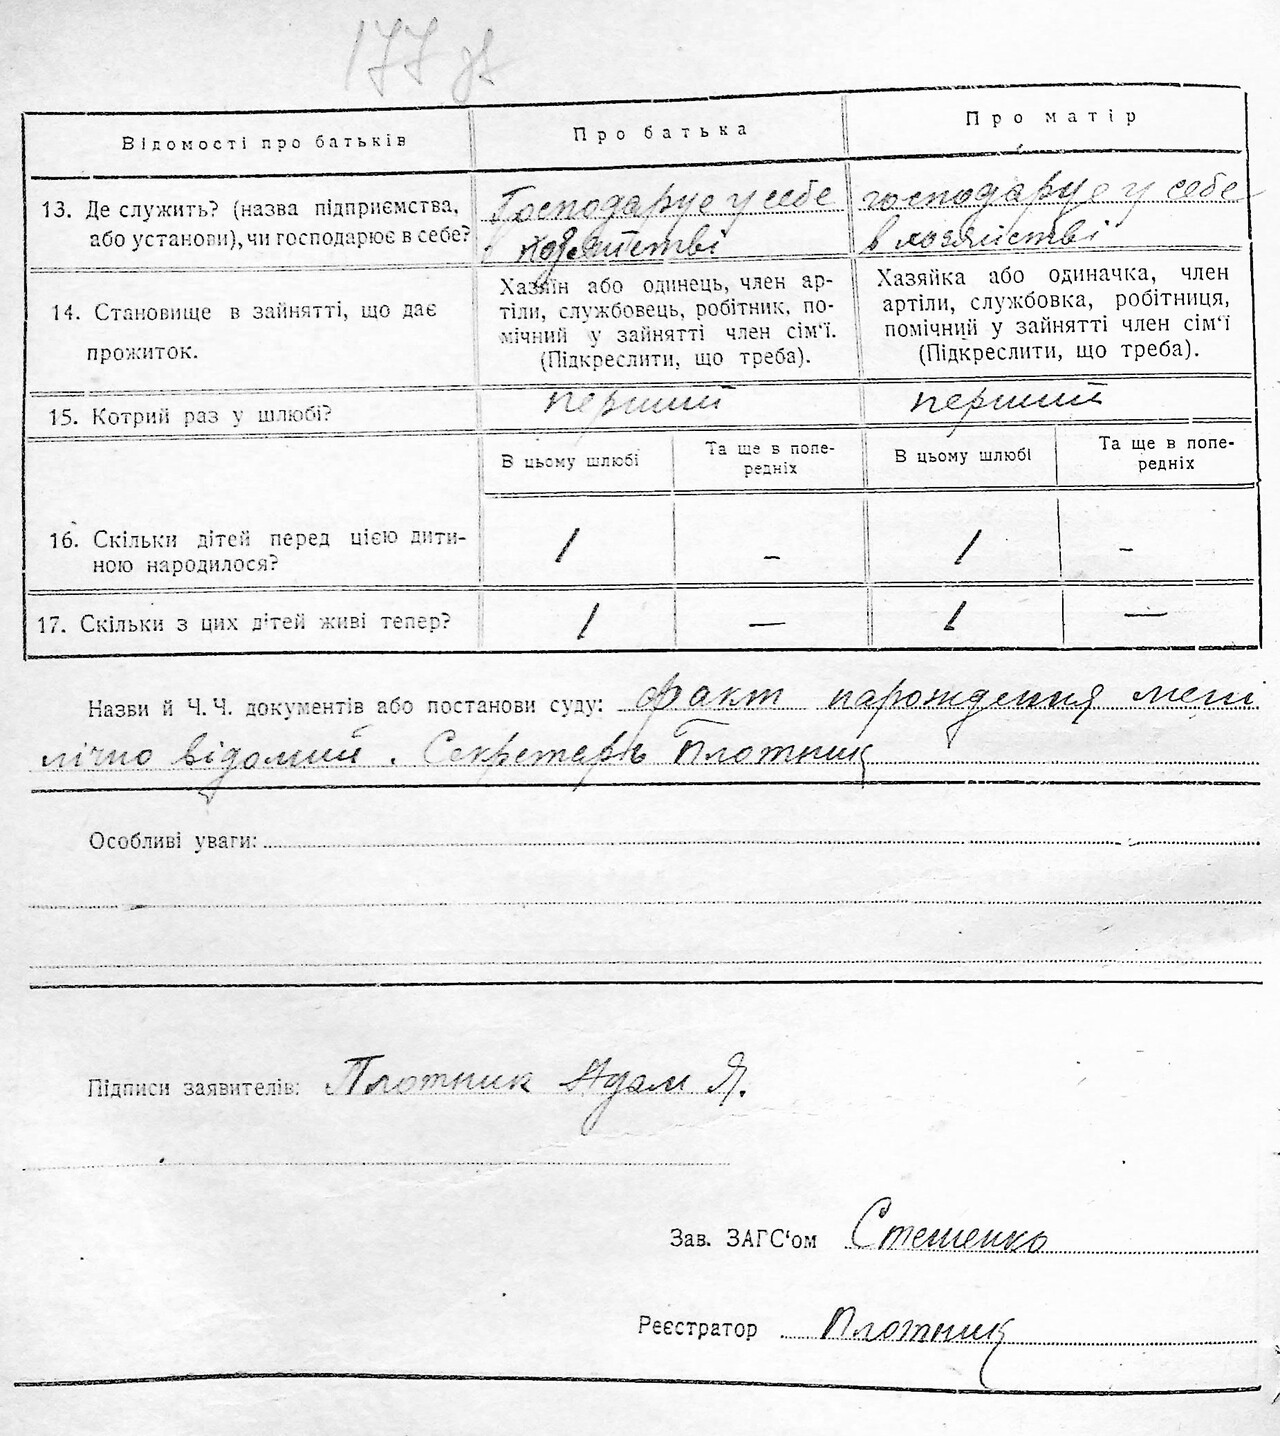 177 зв
Відомості про батьків
Про батька
Про матір
13. Де служить? (назва підприємства, або установи), чи господарює в себе?
Господарує у себе
в хозяйстві
господарує у себе
в хозяйстві
14. Становище в зайнятті, що дає
прожиток.
Хазяїн або одинець, член ар-
тіли, службовець, робітник, по-
мічний у зайнятті член сім'ї.
(Підкреслити, що треба).
Хазяйка або одиначка, член
артіли, службовка, робітниця,
помічний у зайнятті член сім'ї
(Підкреслити, що треба).
15. Котрий раз у шлюбі?
перший
перший
В цьому шлюбі
Та ще в попе-
редніх
В цьому шлюбі
Та ще в попе-
редніх
16. Скільки дітей перед цією дити-
ною народилося?
1
–
1
–
17. Скільки з цих дітей живі тепер?
1
—
1
—
Назви й Ч. Ч. документів або постанови суду: факт нарождення мені
лічно відомий. Секретарь Плотник
Особливі уваги:
Підписи заявителів: Плотник Адам Я.
Зав. ЗАГС'ом Стешенко
Реєстратор Плотник